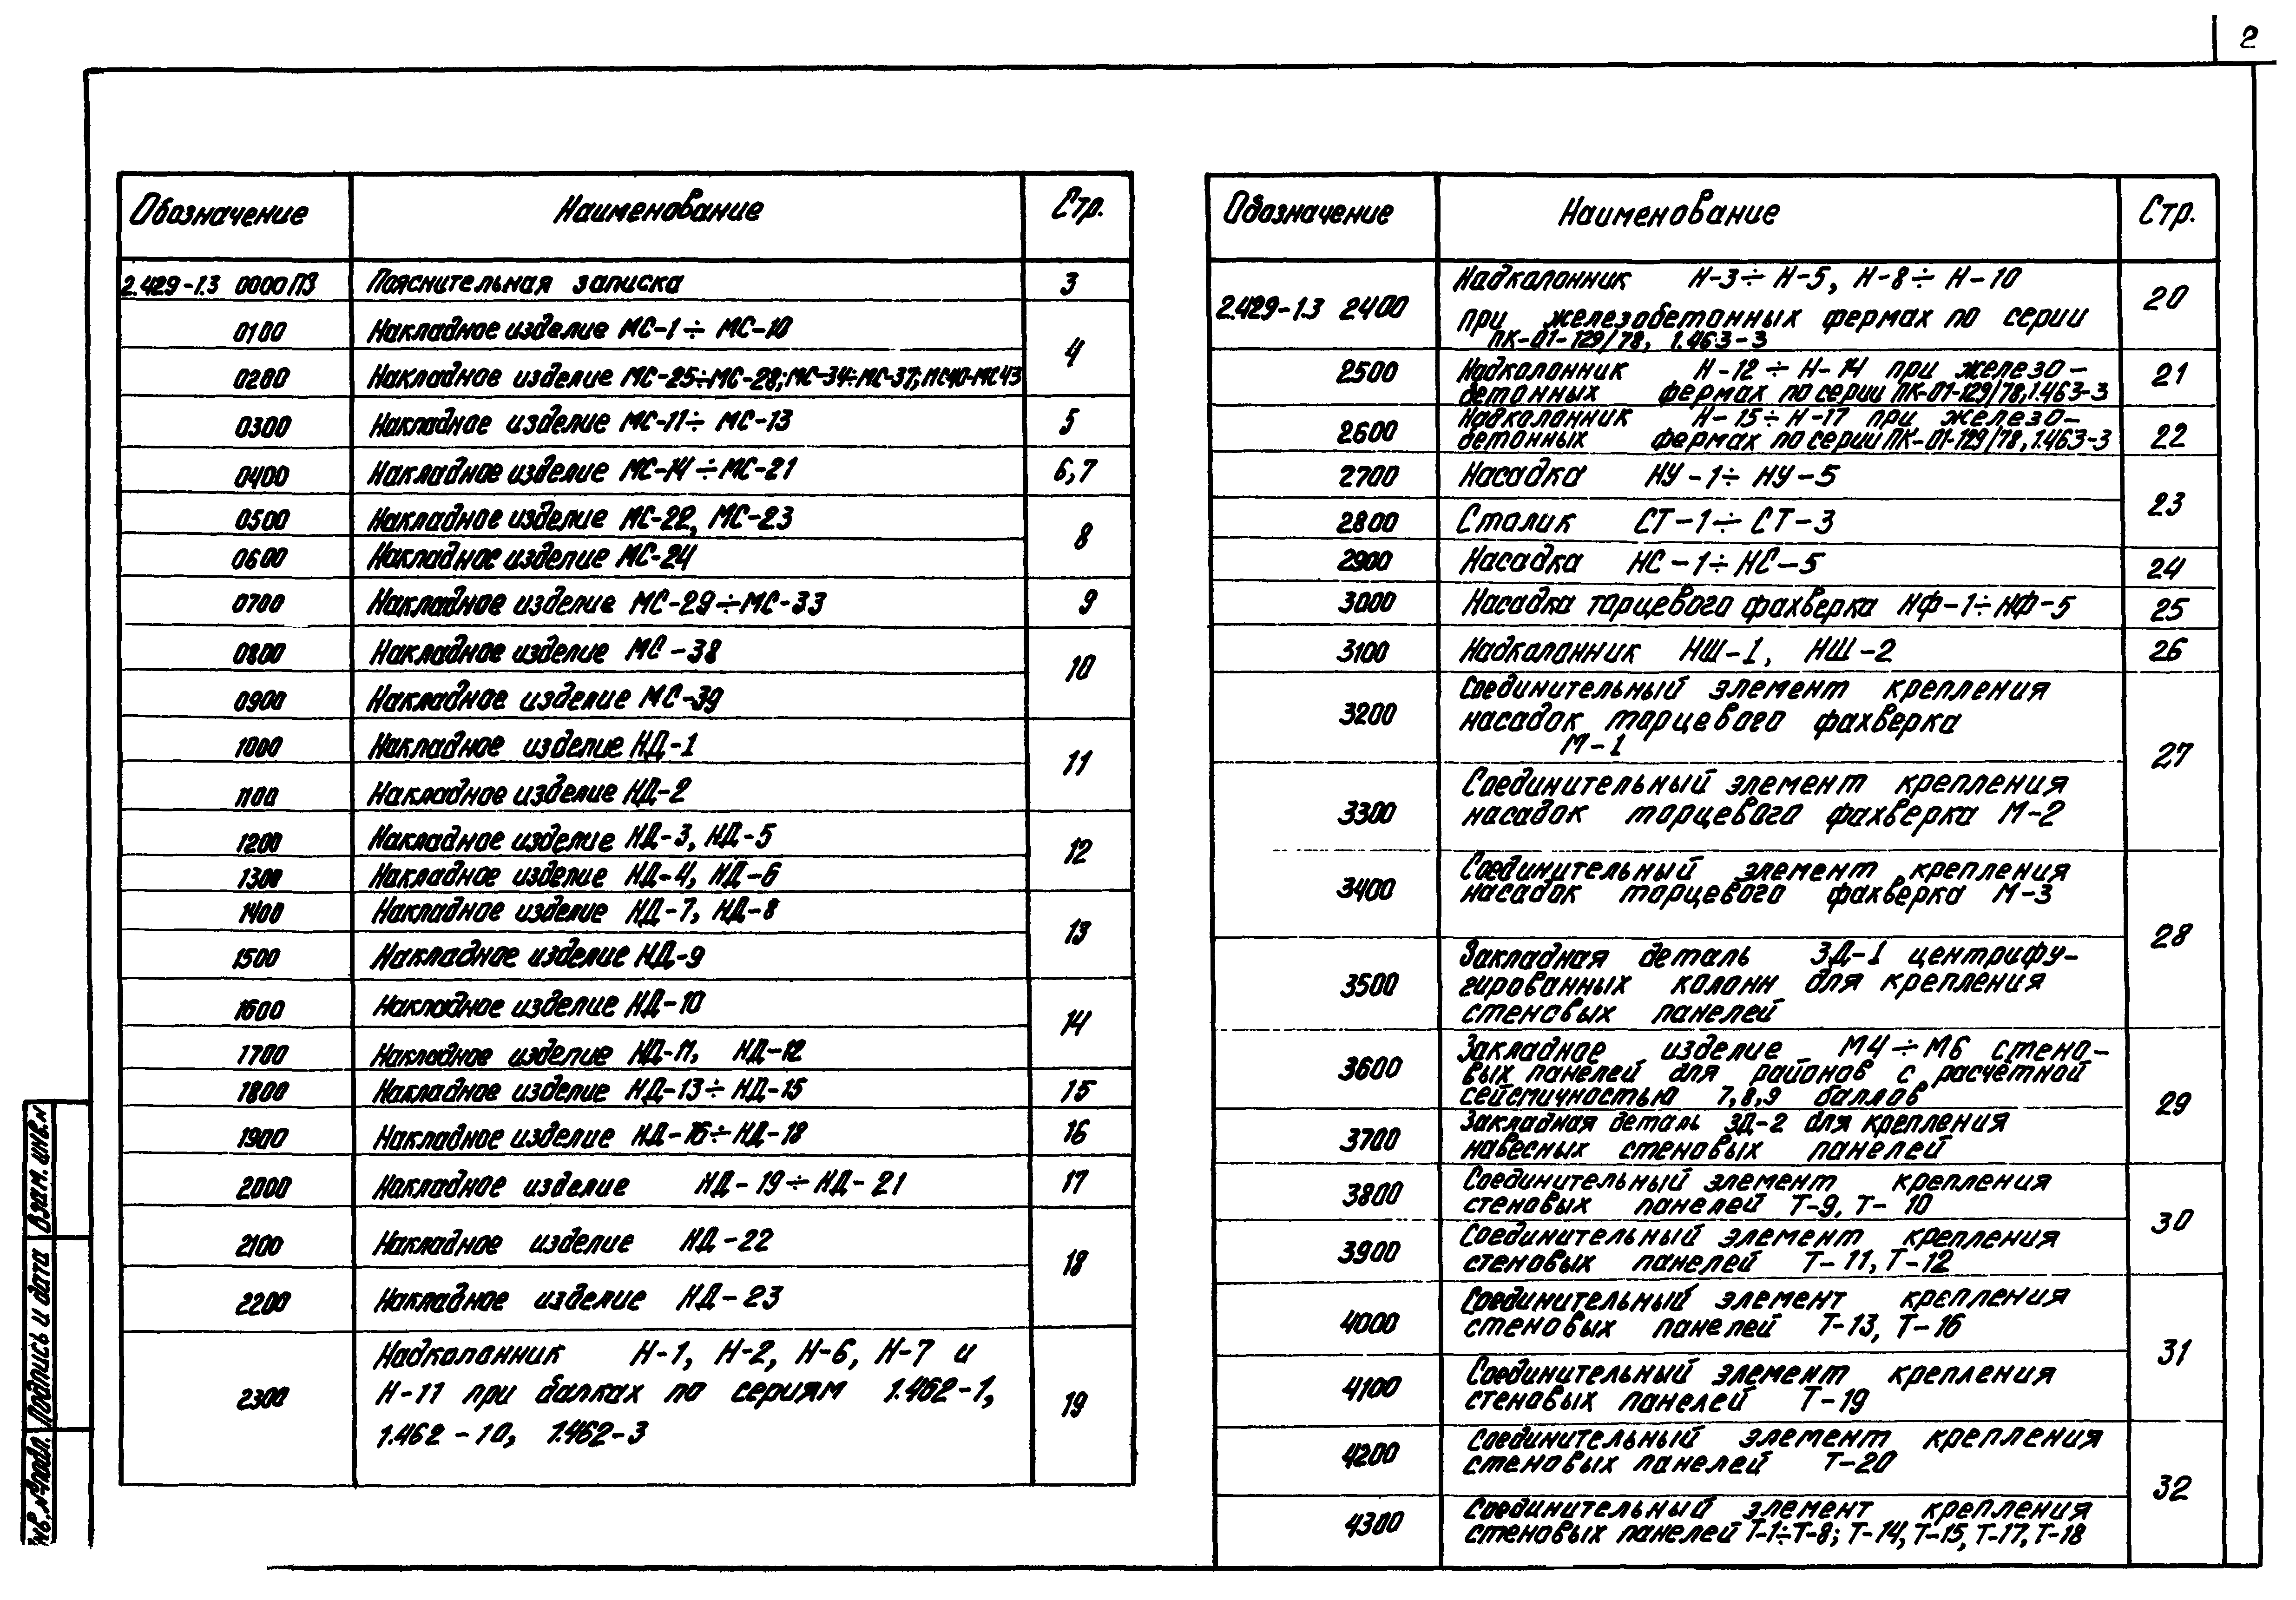 2
Обозначение Наименование Стр.
2.429-1.3 0000ПЗ Пояснительная записка 3
0100 Накладное изделие МС-1÷ МС-10
4
0280 Накладное изделие МС-25÷МС-28; МС-34÷МС-37; МС40-МС43
0300 Накладное изделие МС-11÷ МС-13 5
0400 Накладное изделие МС-14÷МС-21 6,7
0500 Накладное изделие МС-22, МС-23
8
0600 Накладное изделие МС-24
0700 Накладное изделие МС-29÷МС-33 9
0800 Накладное изделие МС-38
10
0900 Накладное изделие МС-39
1000 Накладное изделие НД-1
11
1100 Накладное изделие НД-2
1200 Накладное изделие НД-3, НД-5
12
1300 Накладное изделие НД-4, НД-6
1400 Накладное изделие НД-7, НД-8
13
1500 Накладное изделие НД-9
1600 Накладное изделие НД-10
14
1700 Накладное изделие НД-11, НД-12
1800 Накладное изделие НД-13÷ НД-15 15
1900 Накладное изделие НД-16÷НД-18 16
2000 Накладное изделие НД-19÷НД-21 17
2100 Накладное изделие НД-22
18
2200 Накладное изделие НД-23
Надколонник Н-1, Н-2, Н-6, Н-7 и
2300 Н-11 при балках по сериям 1.462-1, 19
1.462-10, 1.462-3
Обозначение Наименование Стр.
Надколонник Н-3÷ Н-5, Н-8÷ Н-10
2.429-1.3 2400 20
при железобетонных фермах по серии
ПК-01-129/78, 1.463-3
2500 Надколонник Н-12÷Н-14 при железо- 21
бетонных фермах по серии ПК-01-129/78, 1.463-3
Надколонник Н-15÷Н-17 при железо-
2600 бетонных фермах по серии ПК-01-129/78, 1.463-3 22
2700 Насадка НУ-1÷ НУ-5
23
2800 Столик СТ-1÷ СТ-3
2900 Насадка НС-1÷НС-5 24
3000 Насадка торцевого фахверка НФ-1÷НФ-5 25
3100 Надколонник НШ-1, НШ-2 26
Соединительный элемент крепления
3200 насадок торцевого фахверка
М-1
27
Соединительный элемент крепления
3300 насадок торцевого фахверка М-2
Соединительный элемент крепления
3400 насадок торцевого фахверка М-3
28
Закладная деталь ЗД-1 центрифу-
3500 гированных колонн для крепления
стеновых панелей
Закладное изделие М4÷М6 стено-
3600 вых панелей для районов с расчетной
сейсмичностью 7,8,9 баллов
29
Закладная деталь ЗД-2 для крепления
3700 навесных стеновых панелей
Соединительный элемент крепления
3800 стеновых панелей Т-9, Т-10
30
Соединительный элемент крепления
3900 стеновых панелей Т-11, Т-12
Соединительный элемент крепления
4000 стеновых панелей Т-13, Т-16
31
Соединительный элемент крепления
4100 стеновых панелей Т-19
Соединительный элемент крепления
4200 стеновых панелей Т-20
32
Соединительный элемент крепления
4300 стеновых панелей Т-1÷Т-8; Т-14, Т-15, Т-17, Т-18
Взам. инв.№
Подпись и дата
Инв.№подл.